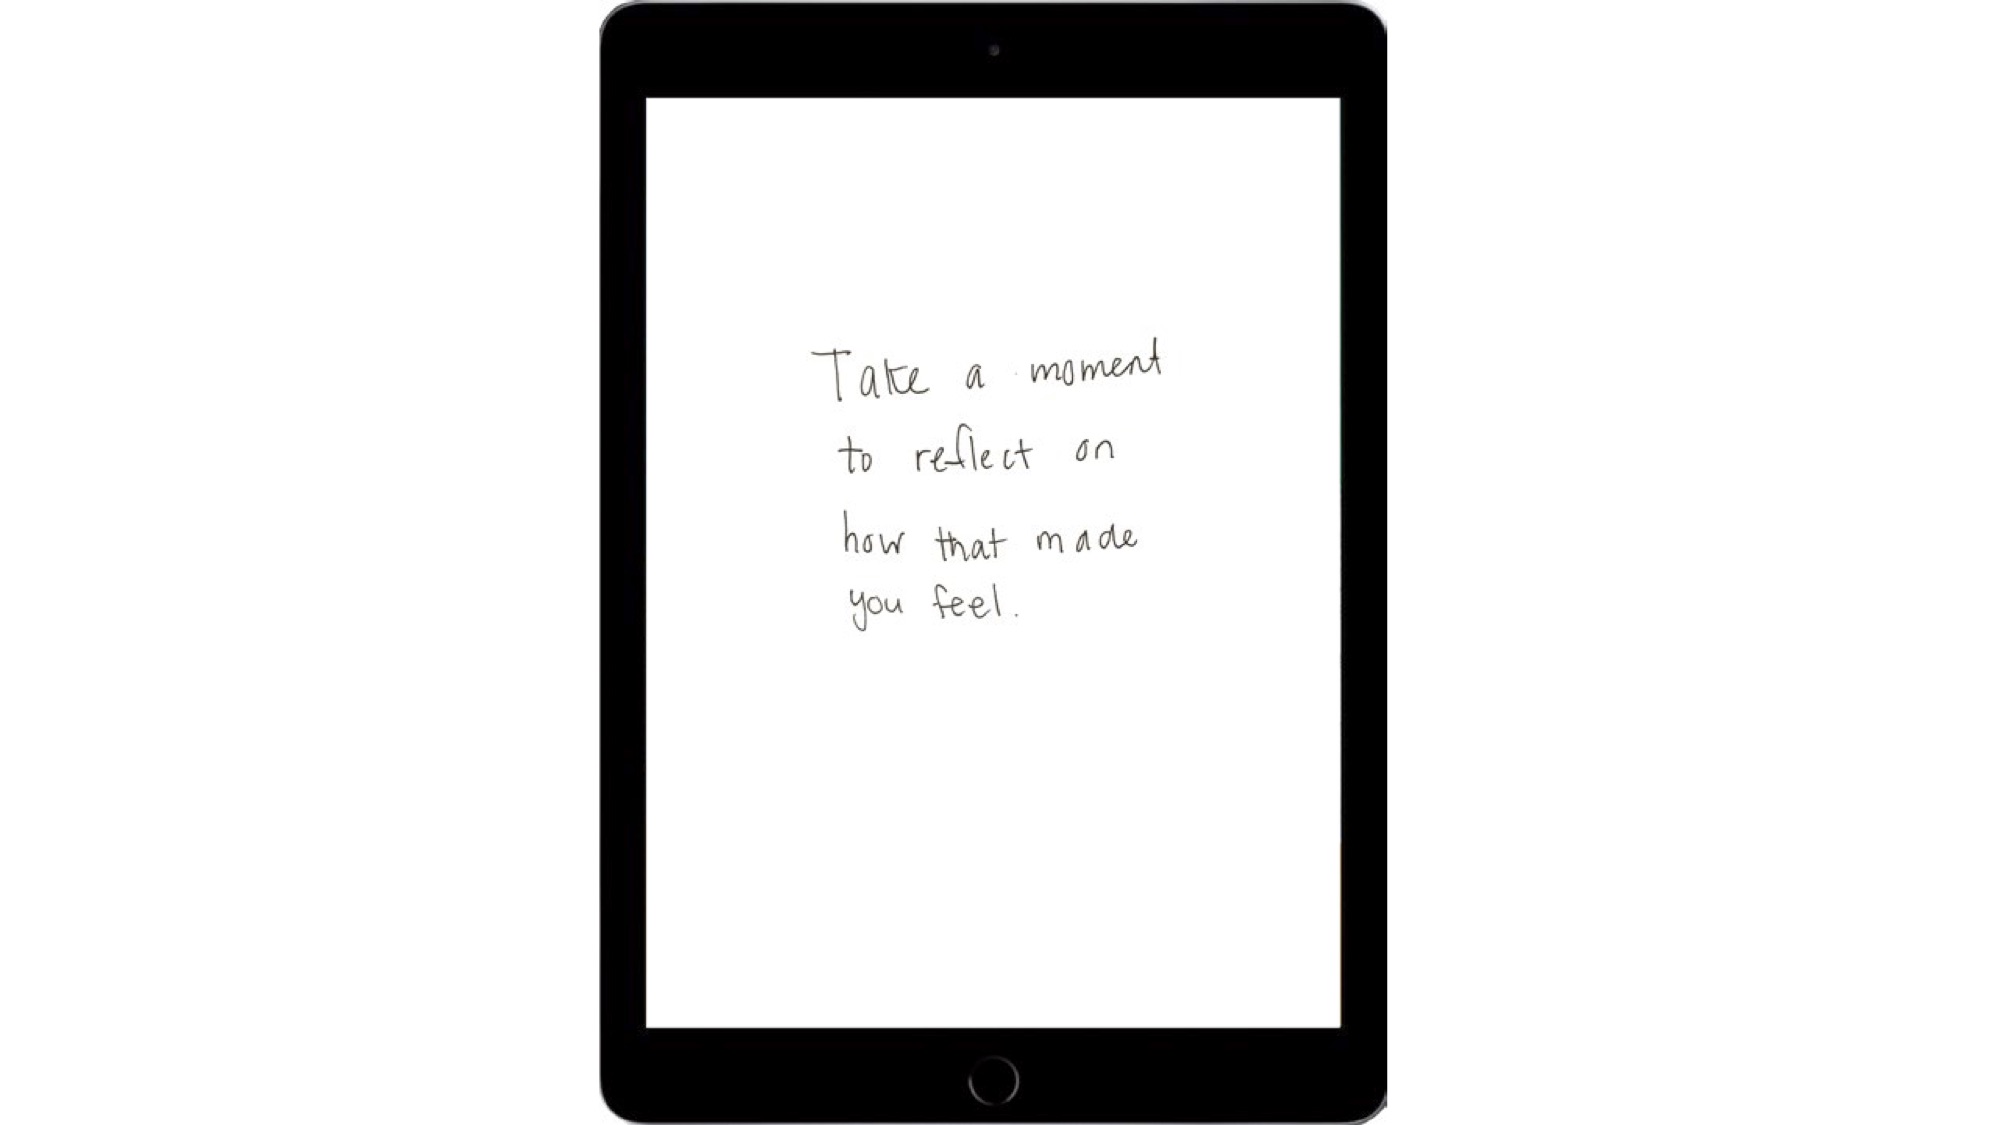 Take a moment
to reflect on
how that made
you feel.